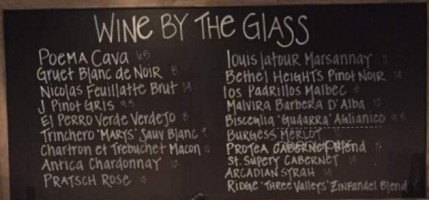 WINE BY THE GLASS
POEMA CAVA
Gruet Blanc de Noir
Nicolas Feuillatte Brut 14
J Pinot Gris 9.5
El Perro Verde Verdejo
Trinchero "Mary's" Sauv Blanc
Chartron et Trebuchet Macon
Antica Chardonnay
PRATSCH ROSE
louis latour Marsannay
Bethel Heights Pinot Noir
los Padrillos Malbec
Malvira Barbera D'Alba
Bisceglia "Gudarra" Aglianico
Burgess MERLOT
PROTEA CABERNET Blend
St. Supery CABERNET
ARCADIAN SYRAH
RIDGE "Three Valleys" Zinfandel Blend